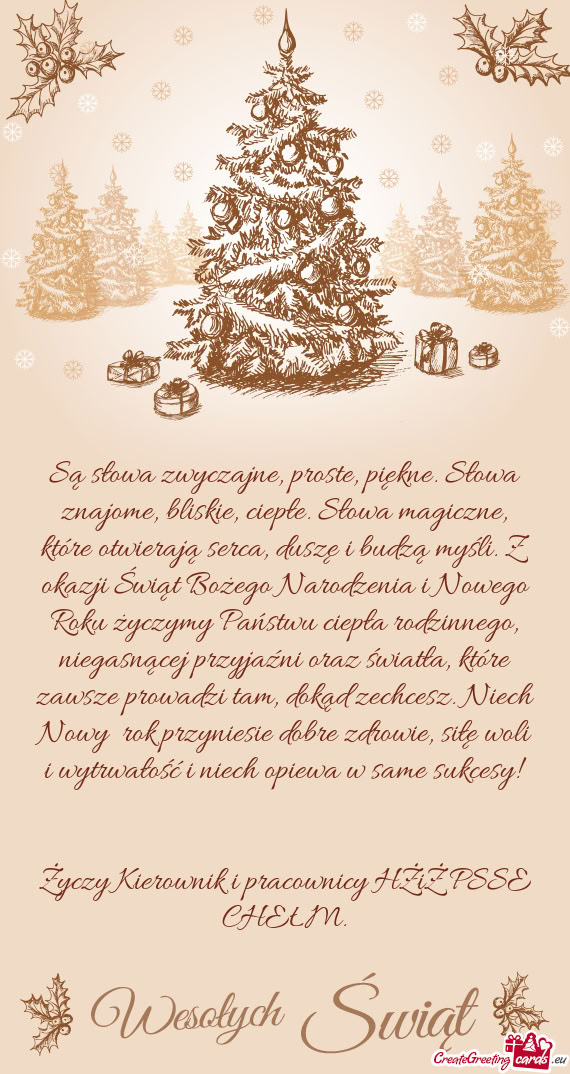 Są słowa zwyczajne, proste, piękne. Słowa
znajome, bliskie, ciepłe. Słowa magiczne,
które otwierają serca, duszę i budzą myśli. Z
okazji Świąt Bożego Narodzenia i Nowego
Roku życzymy Państwu ciepła rodzinnego,
niegasnącej przyjaźni oraz światła, które
zawsze prowadzi tam, dokąd zechcesz. Niech
Nowy rok przyniesie dobre zdrowie, siłę woli
i wytrwałość i niech opiewa w same sukcesy!
Życzy Kierownik i pracownicy HŻiŻ PSSE
CHEŁM.
Wesołych Świąt
CreateGreetingcards.eu